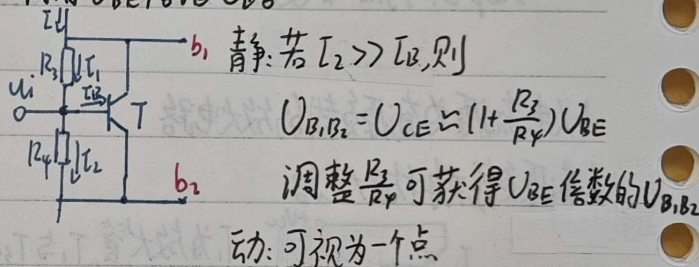 I
b₁
R₃
I₁
静: 若 I₂ >> I_B, 则
uᵢ
I_B
T
U_{B₁B₂} = U_{CE} ≈ (1+R₃/R₄)U_{BE}
R₄
I₂
b₂
调整 R₃/R₄ 可获得 U_{BE} 倍数的 U_{B₁B₂}
动: 可视为一个点